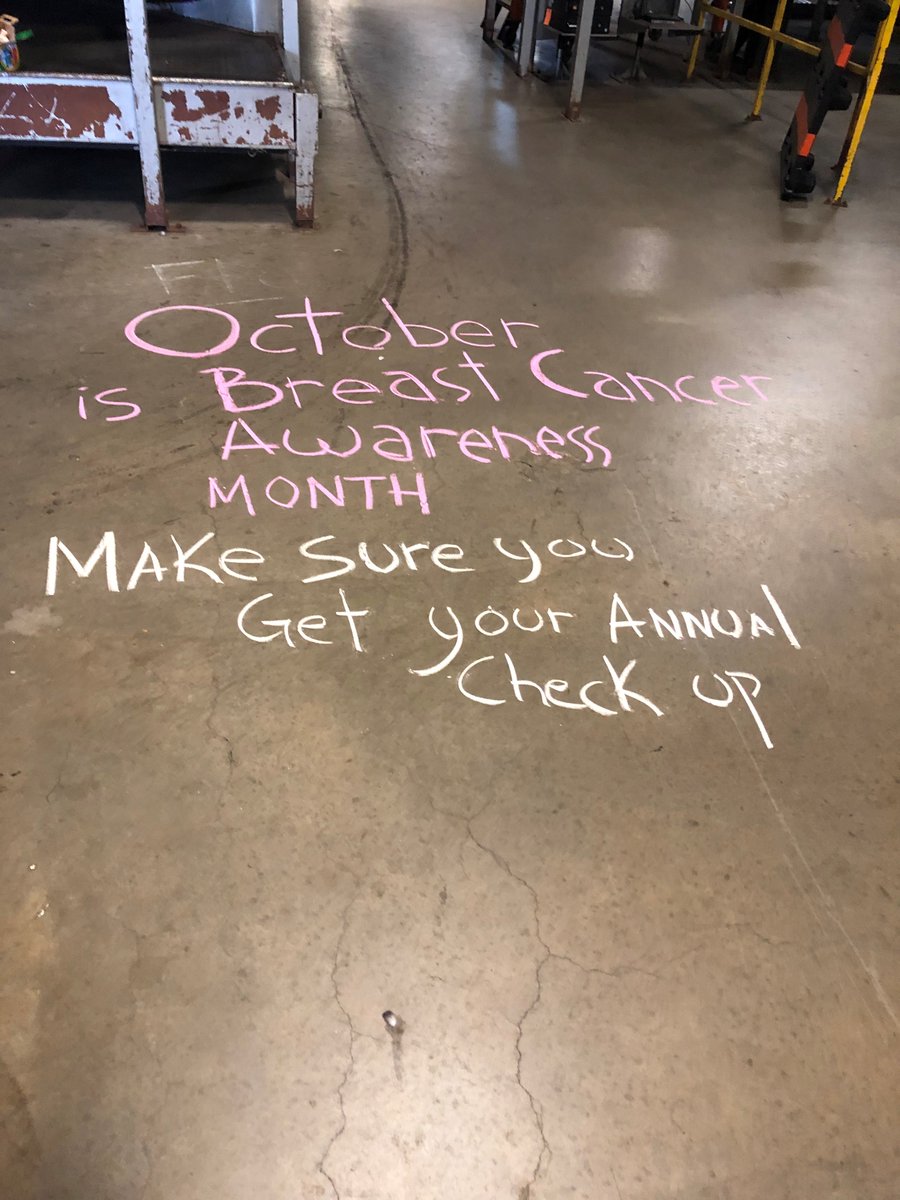 October
is Breast Cancer
Awareness
MONTH
Make Sure you
Get your Annual
Check up